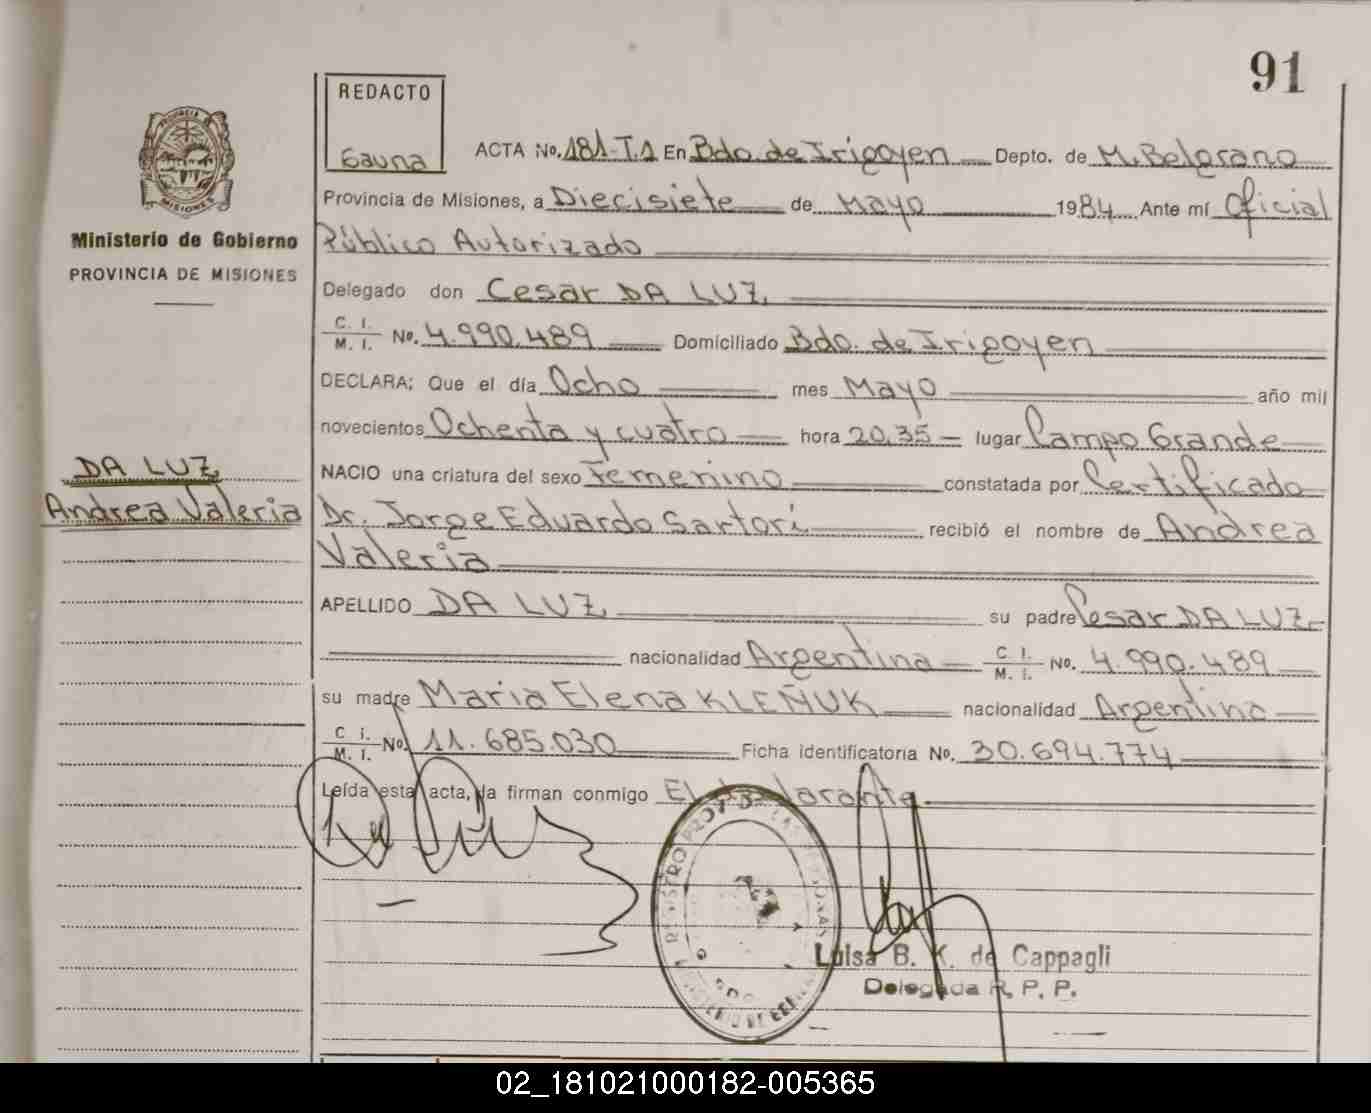 91
REDACTO
Gauna
PROVINCIA DE
MISIONES
Ministerio de Gobierno
PROVINCIA DE MISIONES
DA LUZ
Andrea Valeria
ACTA No. 181-T.1 En Bdo de Irigoyen Depto. de M. Belgrano
Provincia de Misiones, a Diecisiete de Mayo 1984 Ante mí Oficial
Público Autorizado
Delegado don Cesar DA LUZ
C. I. / M. I. No. 4.990.489 Domiciliado Bdo. de Irigoyen
DECLARA; Que el día Ocho mes Mayo año mil
novecientos Ochenta y cuatro hora 20,35 lugar Campo Grande
NACIO una criatura del sexo Femenino constatada por Certificado
Dr. Jorge Eduardo Sartori recibió el nombre de Andrea
Valeria
APELLIDO DA LUZ su padre Cesar DA LUZ
nacionalidad Argentina C. I. / M. I. No. 4.990.489
su madre Maria Elena KLEÑUK nacionalidad Argentina
C. I. / M. I. No. 11.685.030 Ficha identificatoria No. 30.694.774
Leída esta acta, la firman conmigo El declarante
REGISTRO PROV. DE LAS PERSONAS
MINISTERIO DE
Luisa B. K. de Cappagli
Delegada R. P. P.
02_181021000182-005365